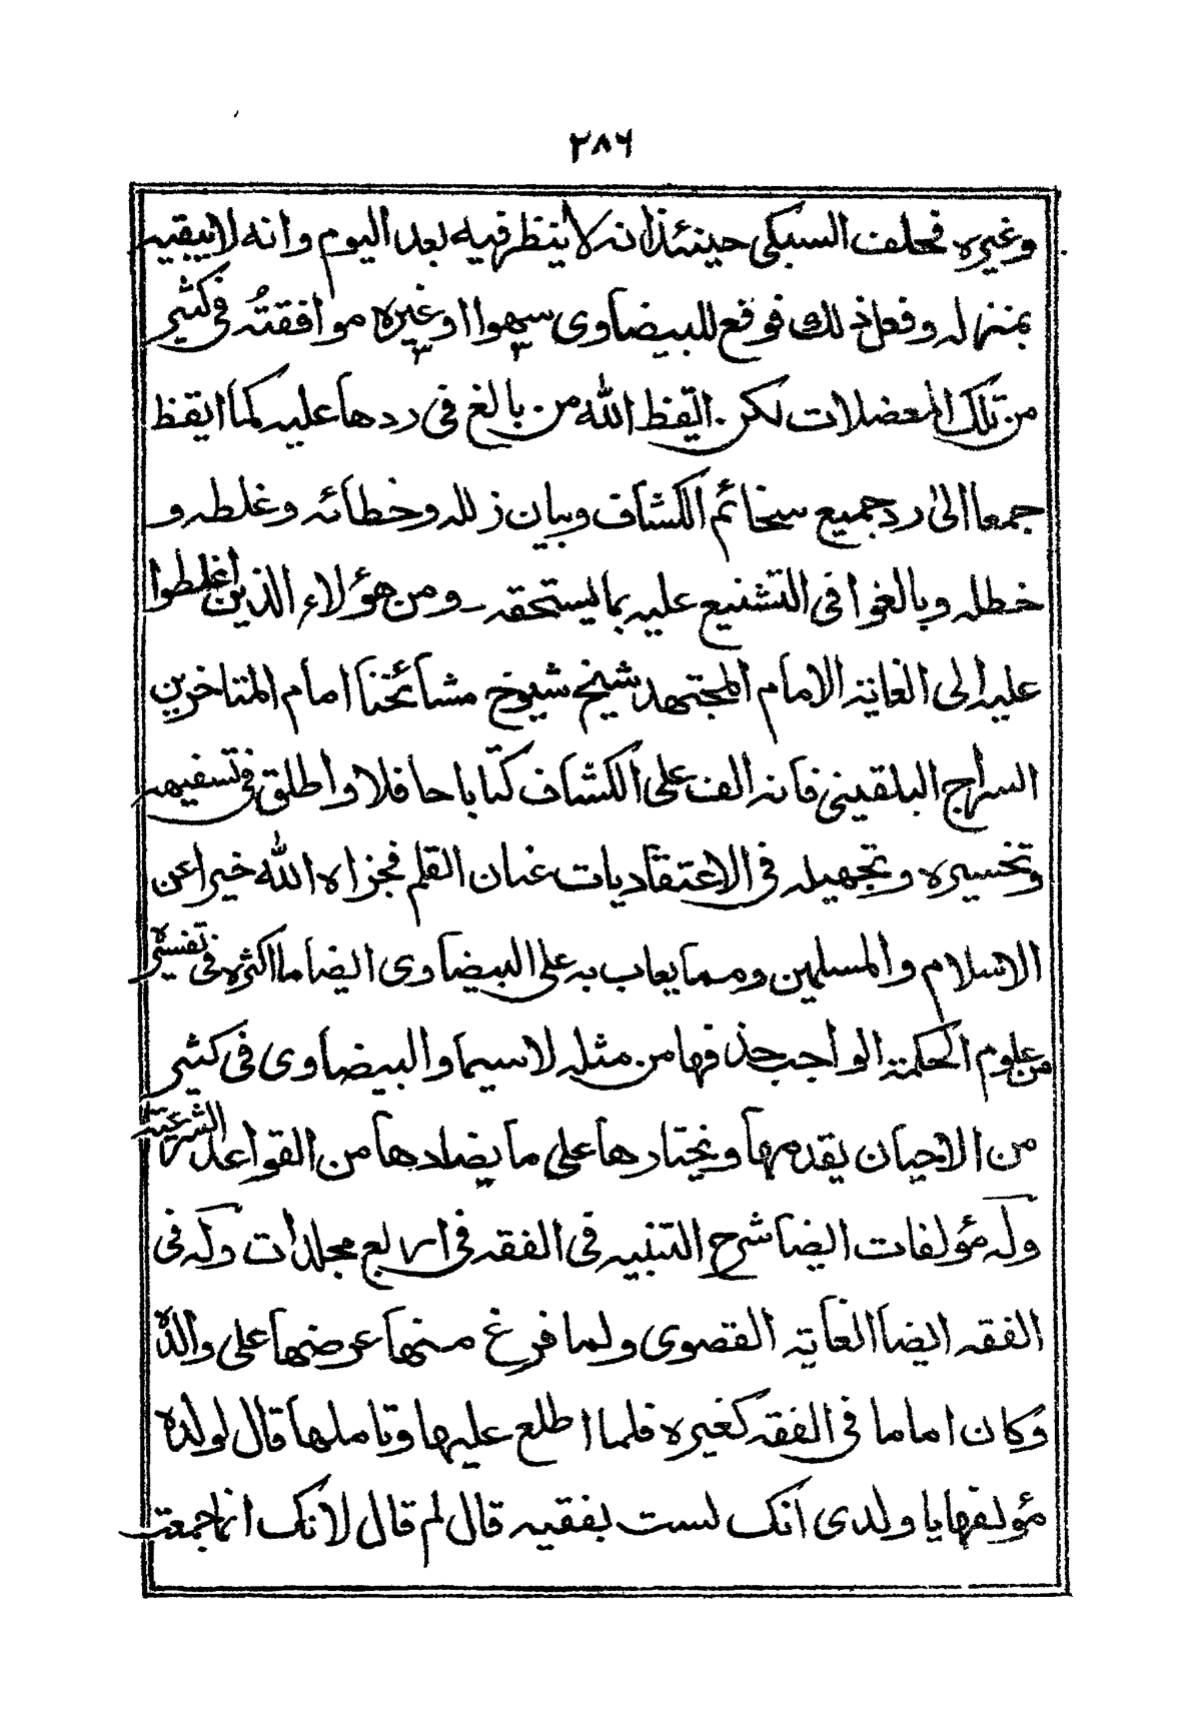 ٢٨٦
وغيره فحلف السبكى حينئذ انه لا ينظر فيه بعد اليوم وانه لا يبقيه
بمنزله وفعل ذلك فوقع للبيضاوى سهوا اوغيره موافقتُه فى كثير
من تلك المعضلات لكن ايقظ الله من بالغ فى ردها عليه كما ايقظ
جمعا الى رد جميع سخائم الكشاف وبيان زلله وخطائه وغلطه و
خطله وبالغوا فى التشنيع عليه بما يستحقه ومن هؤلاء الذين اغلظوا
عليه الى الغاية الامام المجتهد شيخ شيوخ مشائخنا امام المتاخرين
السراج البلقينى فانه الف على الكشاف كتابا حافلا واطلق فى تسفيهه
وتخسيره وتجهيله فى الاعتقاديات عنان القلم فجزاه الله خيرا عن
الاسلام والمسلمين ومما يعاب به على البيضاوى ايضا ما اكثره فى تفسيره
من علوم الحكمة الواجب حذفها من مثله لاسيما والبيضاوى فى كثير
من الاحيان يقدمها ويختارها على ما يضادها من القواعد الشرعية
وله مؤلفات ايضا شرح التنبيه فى الفقه فى اربع مجلدات وله فى
الفقه ايضا الغاية القصوى ولما فرغ منها عرضها على والده
وكان اماما فى الفقه كغيره فلما اطلع عليها وتاملها قال لولده
مؤلفها يا ولدى انك لست بفقيه قال لم قال لانك انما جمعت